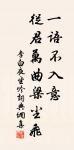 一語不入意
從君萬曲梁塵飛
李白夜坐吟詞典網喜